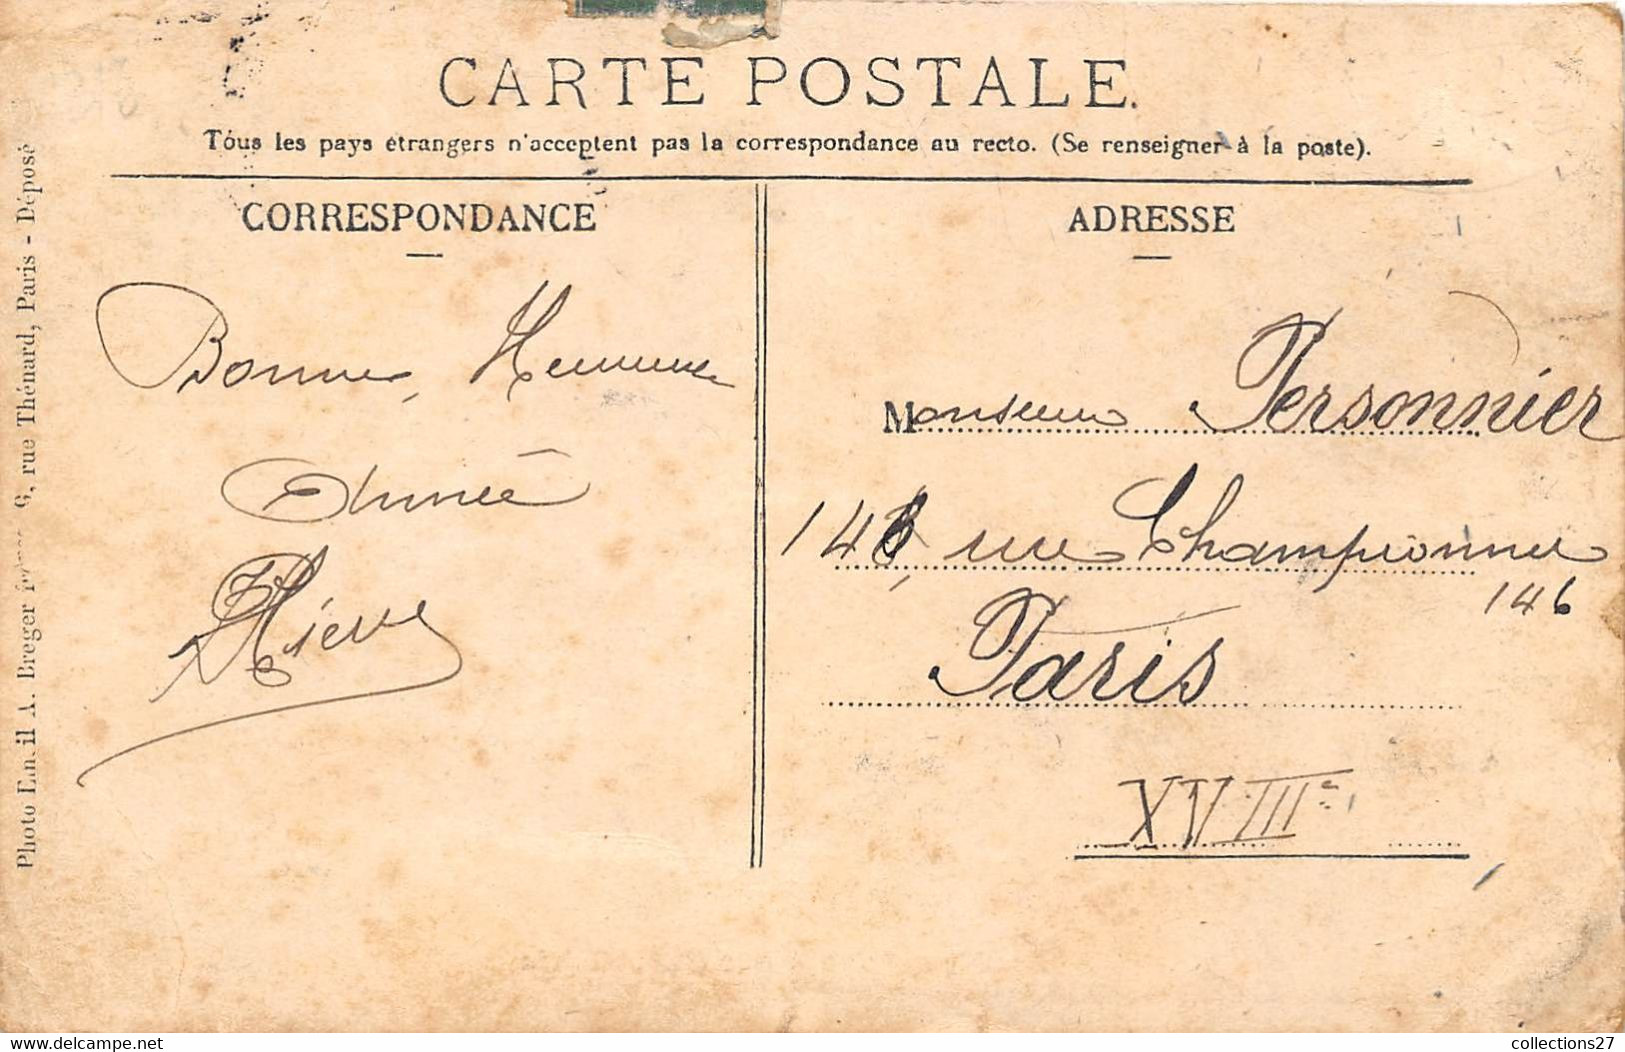 CARTE POSTALE.
Tous les pays étrangers n'acceptent pas la correspondance au recto. (Se renseigner à la poste).
CORRESPONDANCE
Bonne, Heureuse
Année
ADRESSE
Monsieur Personnier
146, rue Championnet
146
Paris
XVIIIe
Photo Emil A. Breger frères 9, rue Thénard, Paris - Déposé
collections27